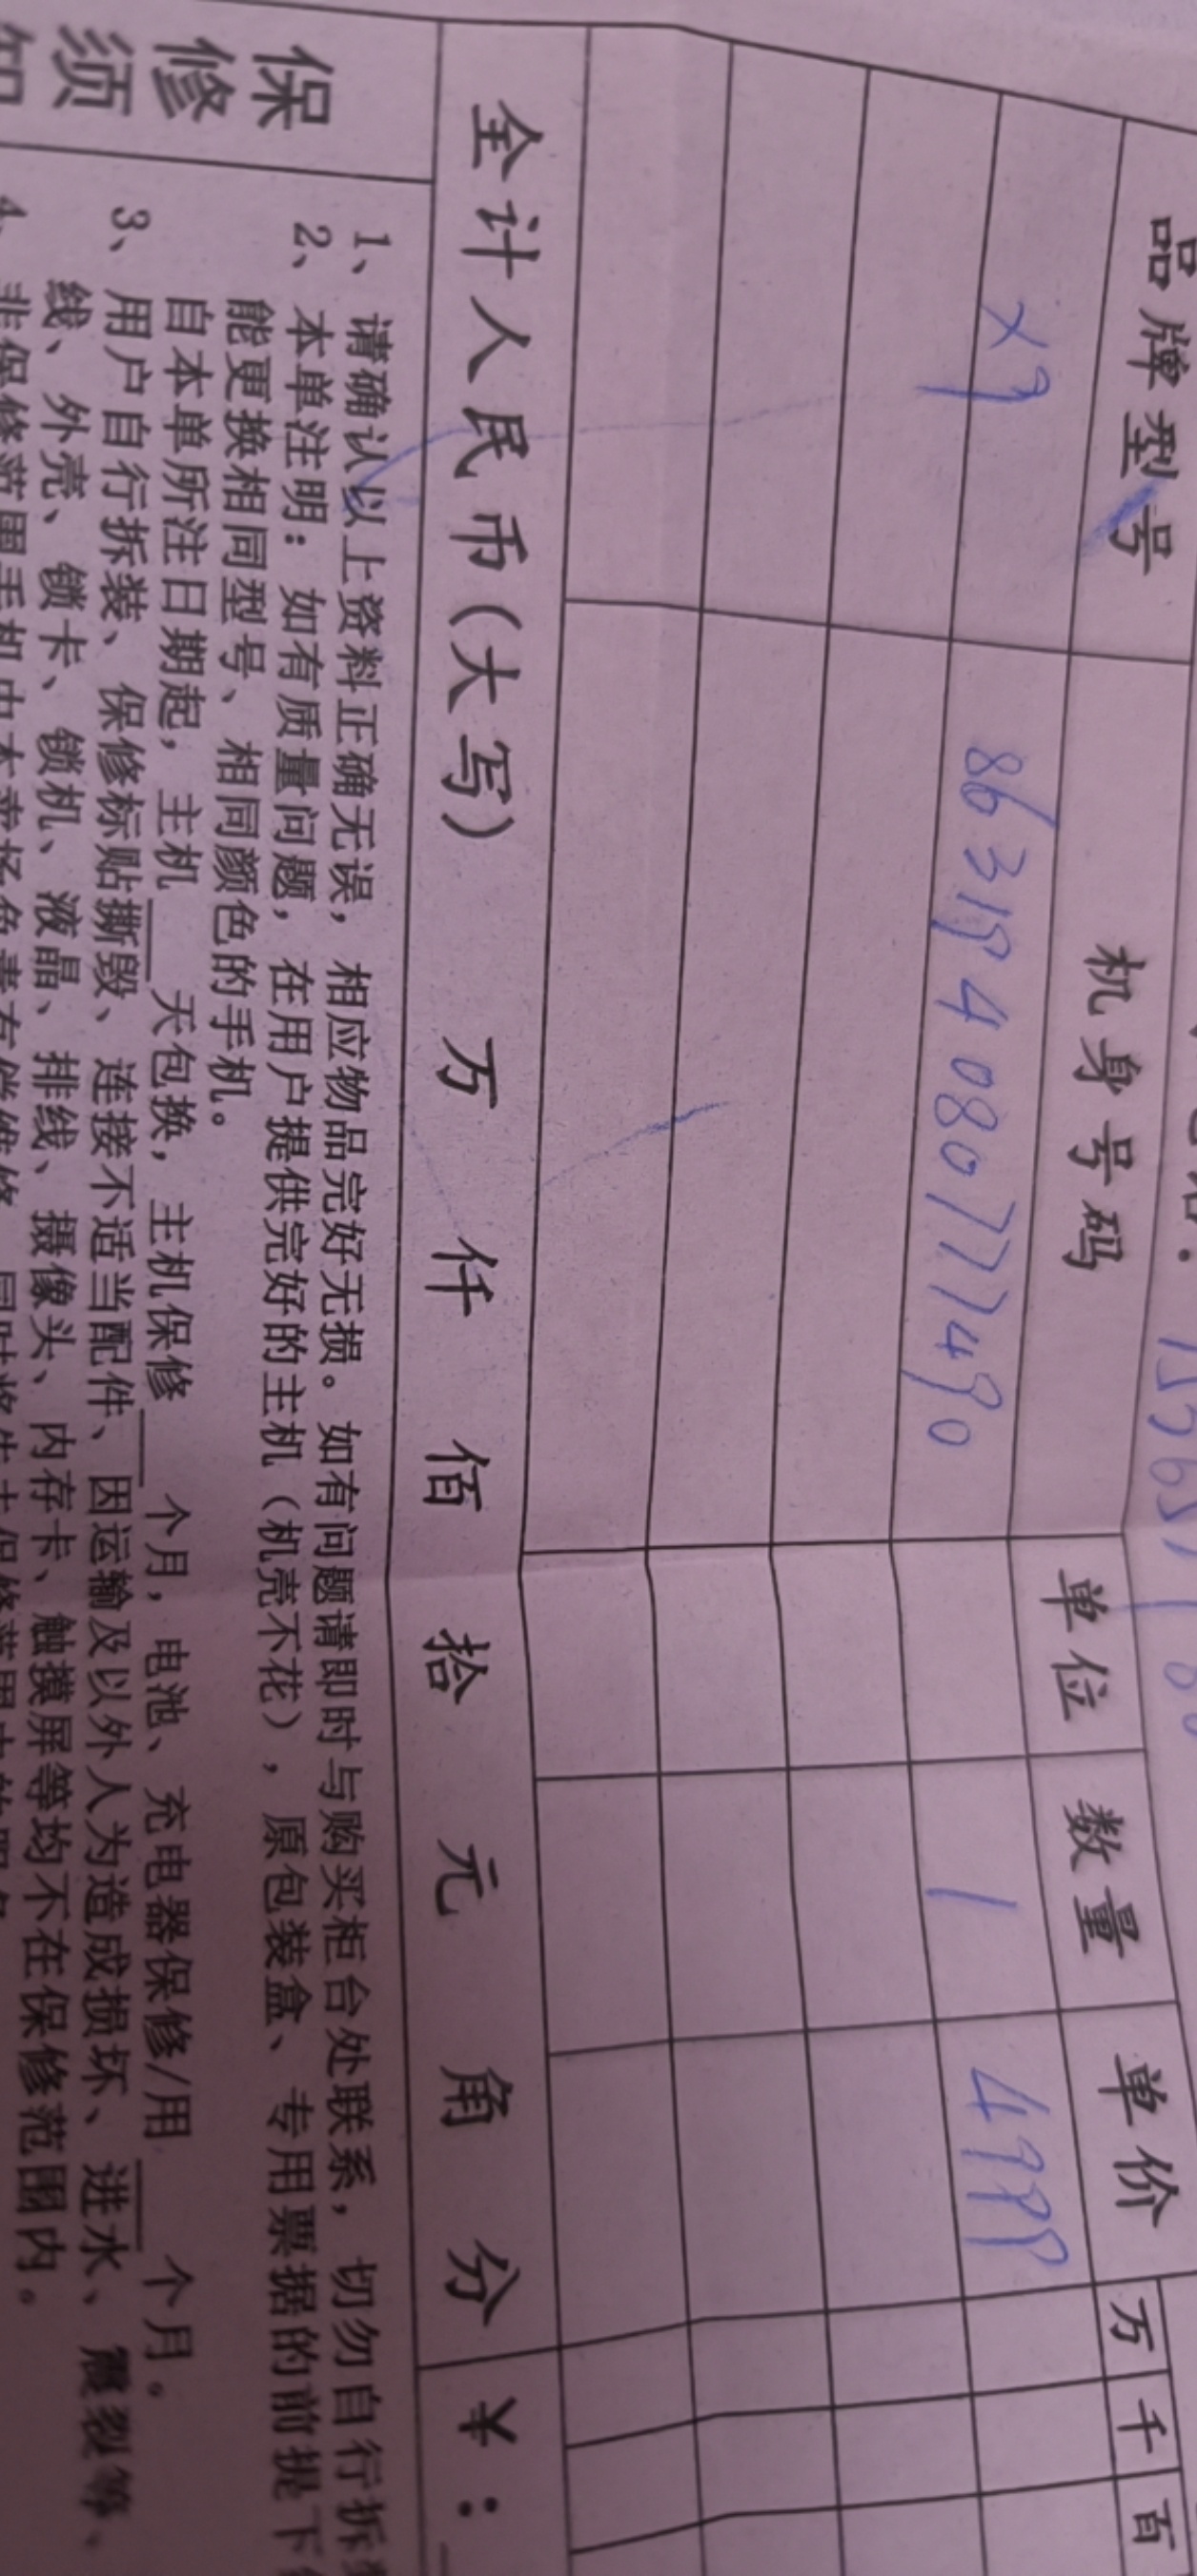 品牌型号 机身号码 单位 数量 单价 万 千 百
X9 863194080777490 1 4999
全计人民币(大写) 万 仟 佰 拾 元 角 分 ¥:
保修须知
1、请确认以上资料正确无误，相应物品完好无损。如有问题请即时与购买柜台处联系，切勿自行拆
2、本单注明：如有质量问题，在用户提供完好的主机（机壳不花），原包装盒、专用票据的前提下
能更换相同型号、相同颜色的手机。
自本单所注日期起，主机___天包换，主机保修___个月，电池、充电器保修/用___个月。
3、用户自行拆装、保修标贴撕毁、连接不适当配件、因运输及以外人为造成损坏、进水、震裂等、
线、外壳、锁卡、锁机、液晶、排线、摄像头、内存卡、触摸屏等均不在保修范围内。
4、非保修范围手机由本卖场负责有偿维修